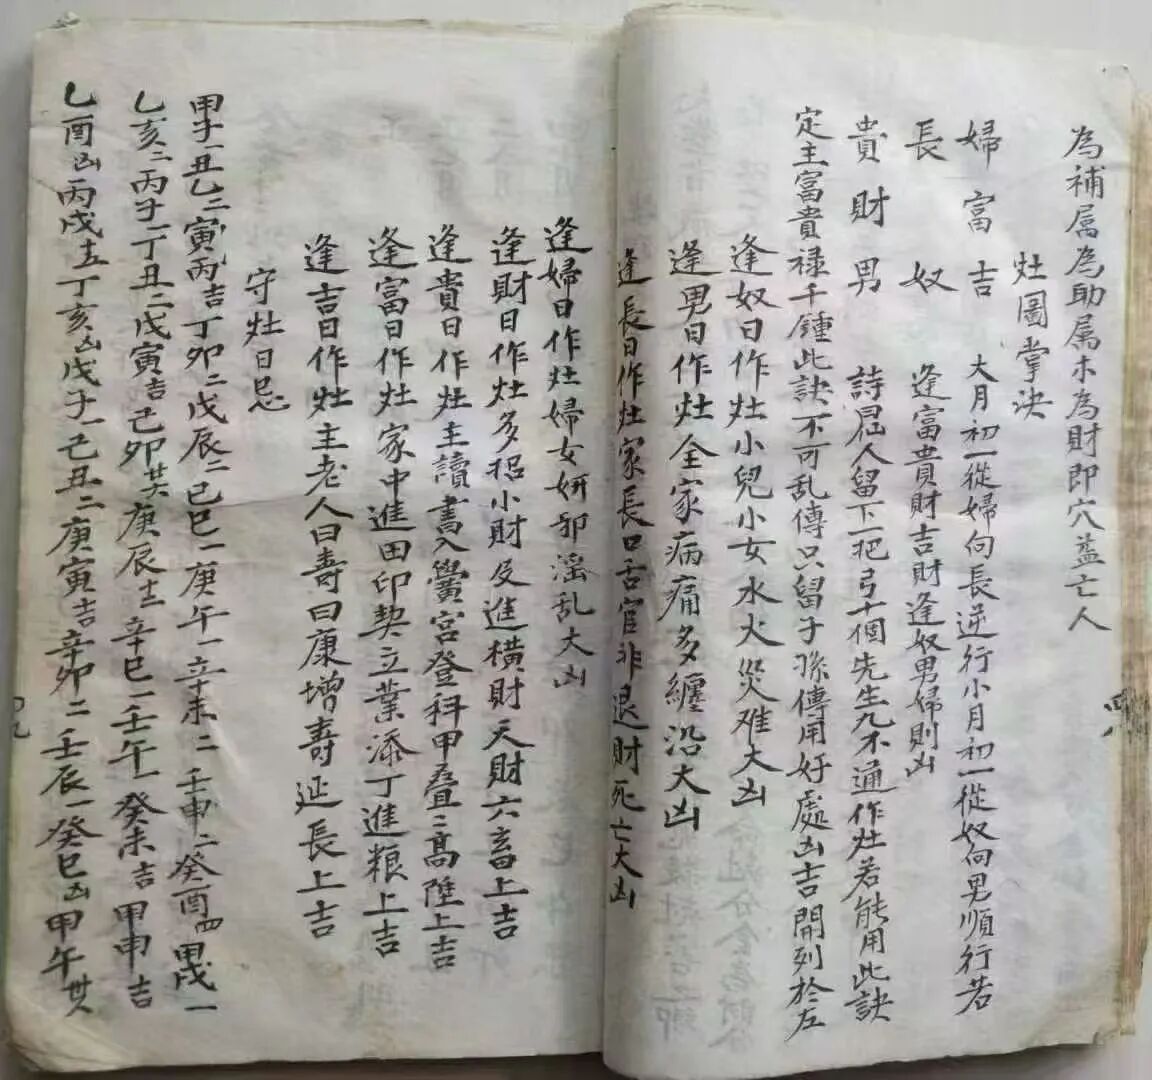 為補属為助属木為財即穴益亡人
灶圖掌決
婦富吉 大月初一從婦向長逆行小月初一從奴向男順行若
長 奴 逢富貴財吉財逢奴男婦則凶
貴財男 詩屈人留下一把弓十個先生九不通作灶若能用此訣
定主富貴禄千鍾此訣不可乱傳只留子孫傳用好處凶吉開列於左
逢奴日作灶小兒小女水火災难大凶
逢男日作灶全家病痛多纏沿大凶
逢長日作灶家長口舌官非退財死亡大凶
四八
逢婦日作灶婦女妍邪淫乱大凶
逢財日作灶多招小財及進横財天財六畜上吉
逢貴日作灶主讀書入黌宮登科甲叠二高陞上吉
逢富日作灶家中進田印契立業添丁進粮上吉
逢吉日作灶主老人曰壽曰康增壽延長上吉
守灶日忌
甲子一丑乙二寅丙吉丁卯二戊辰二己巳一庚午一辛未二壬申二癸酉四甲戌一
乙亥二丙子一丁丑二戊寅吉己卯廿六庚辰十二辛巳一壬午一癸未吉甲申吉
乙酉凶丙戌十五丁亥凶戊子一己丑二庚寅吉辛卯二壬辰一癸巳凶甲午廿六
四九